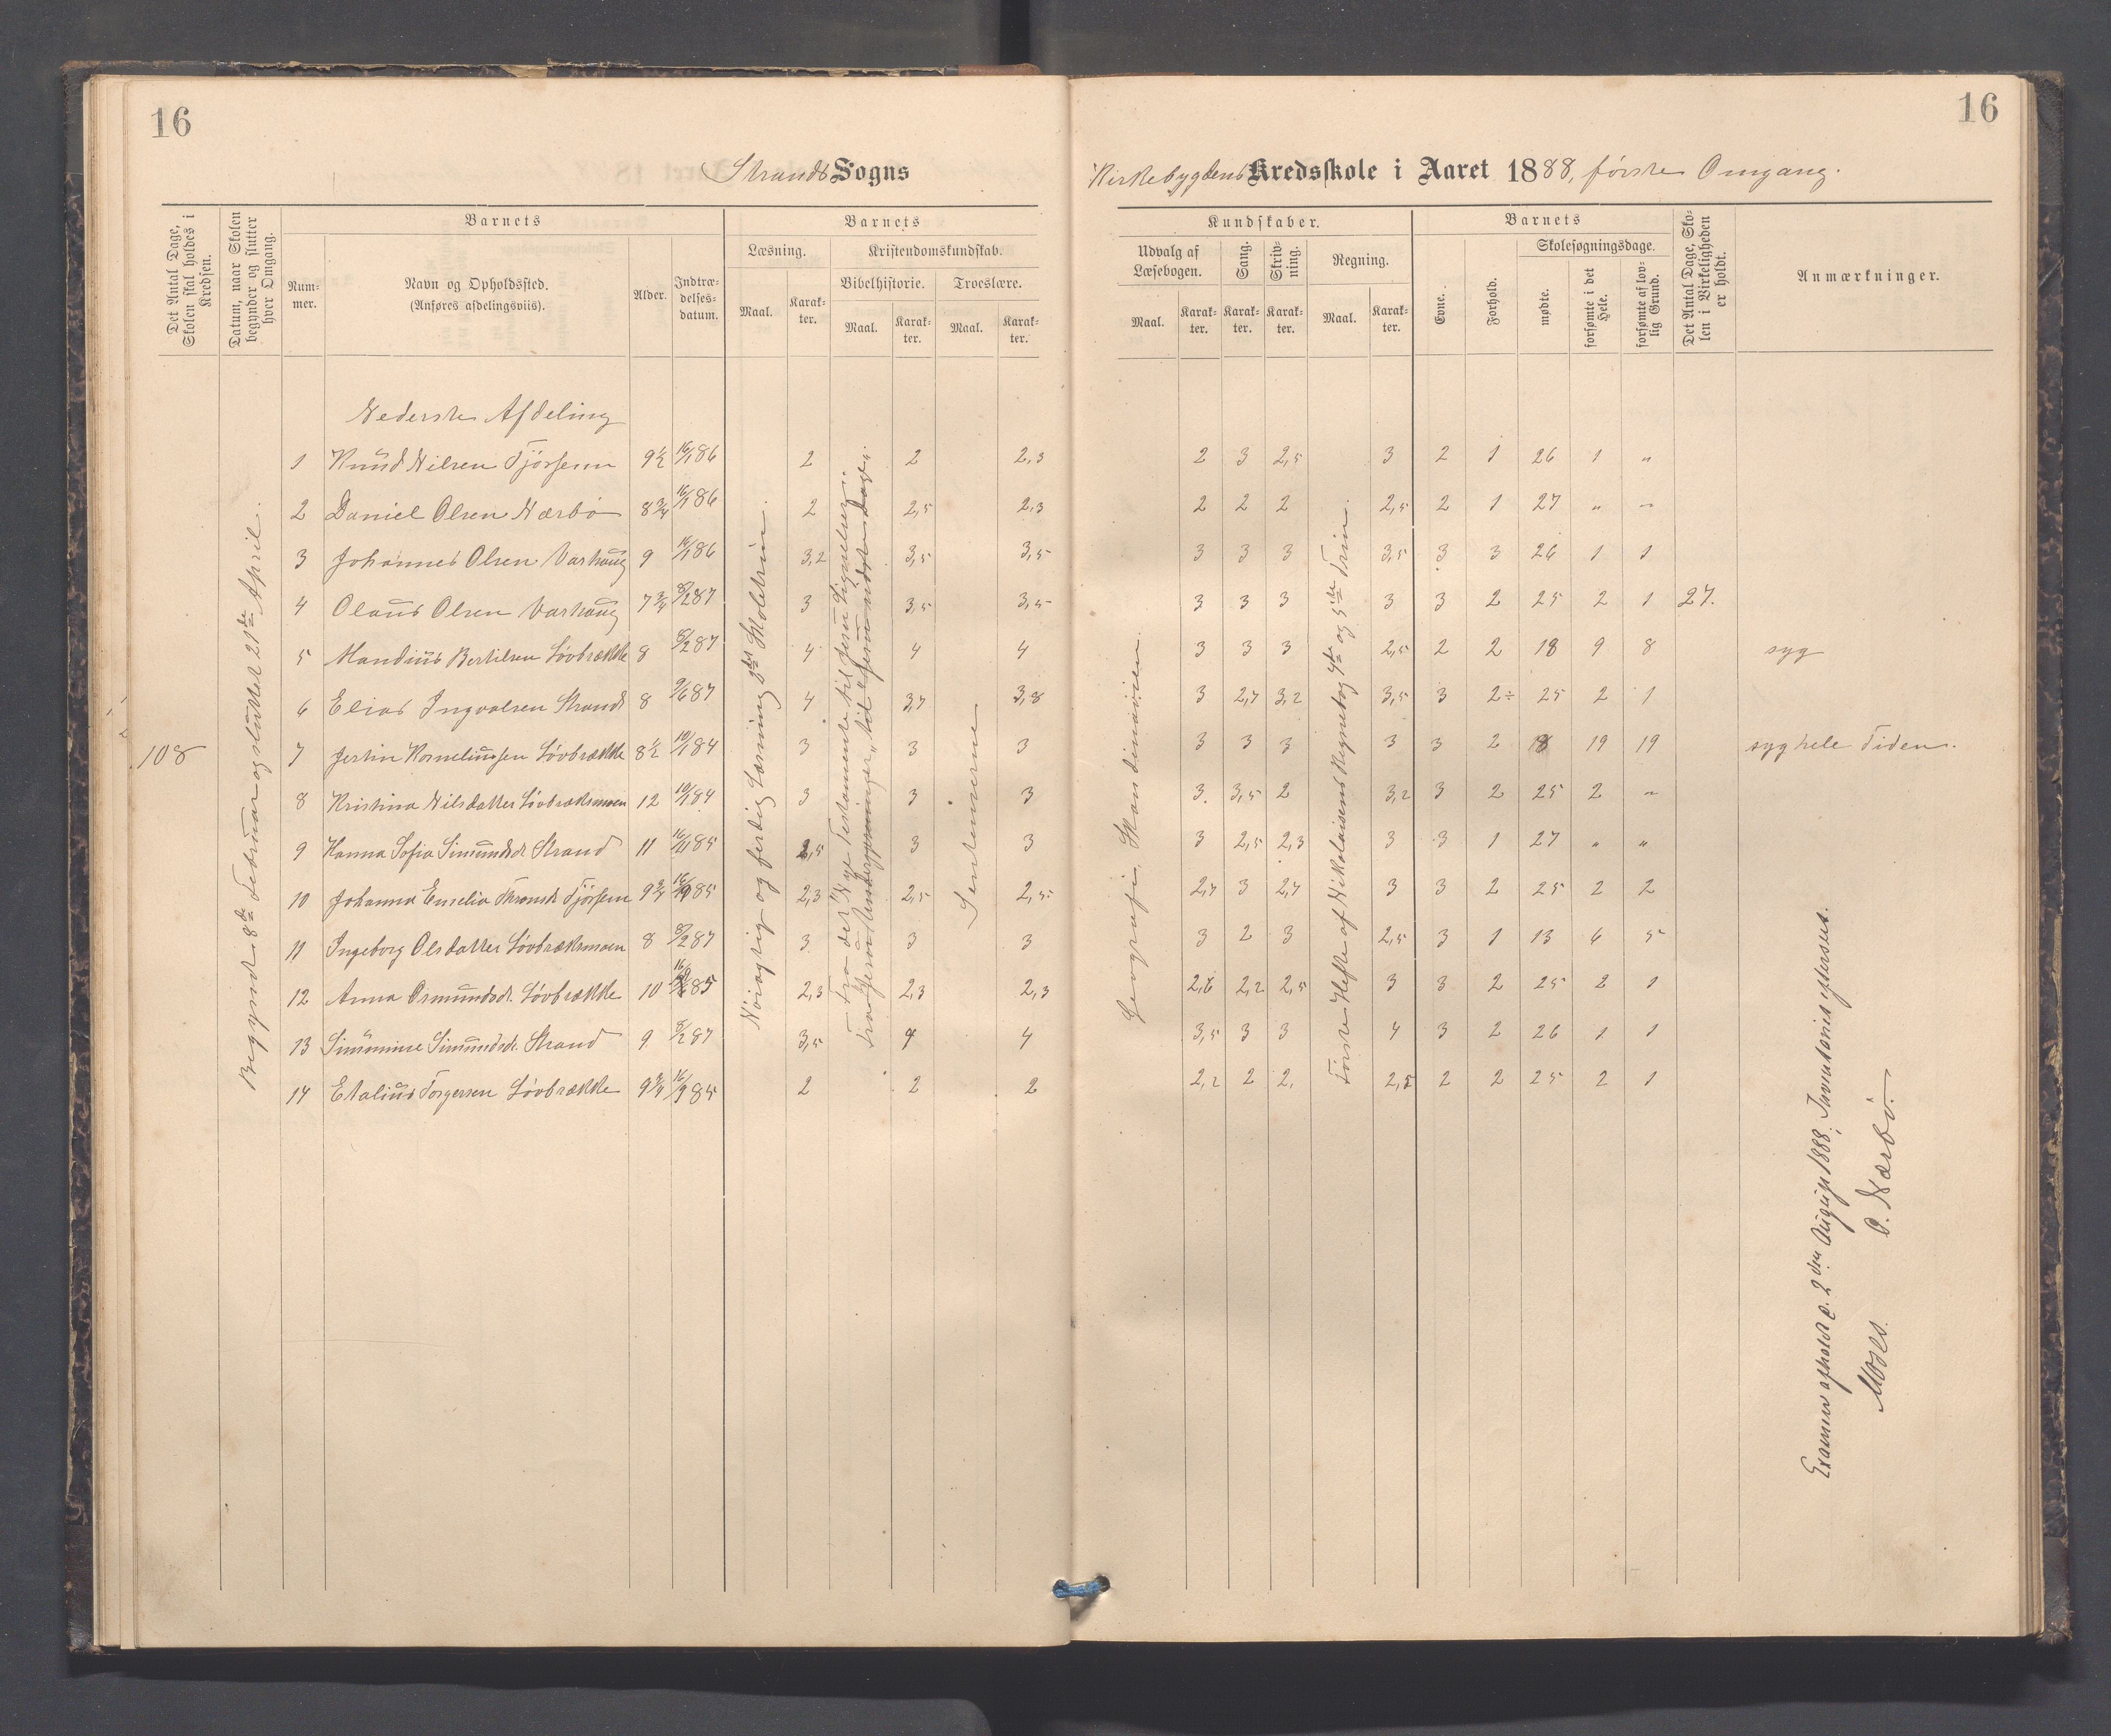 16
16
Strands Sogns
Kirkebygdens Kredsskole i Aaret 1888, første Omgang.
Det Antal Dage, Skolen skal holdes i Kredsen.
Datum, naar Skolen begynder og slutter hver Omgang.
Barnets
Num-
mer.
Navn og Opholdssted.
(Anføres afdelingsviis).
Alder.
Indtræ-
delses-
datum.
Barnets
Læsning.
Kristendomskundskab.
Bibelhistorie.
Troeslære.
Maal.
Karak-
ter.
Maal.
Karak-
ter.
Maal.
Karak-
ter.
Kundskaber.
Udvalg af
Læsebogen.
Sang.
Skriv-
ning.
Regning.
Maal.
Karak-
ter.
Karak-
ter.
Karak-
ter.
Maal.
Karak-
ter.
Barnets
Evne.
Forhold.
Skolesøgningsdage.
mødte.
forsømte i det Hele.
forsømte af lov-
lig Grund.
Det Antal Dage, Sko-
len i Virkeligheden
er holdt.
Anmærkninger.
Nederste Afdeling
1 Knud Nilsen Tjøssem 9½ 16/1 86 2 2 2,3 2 3 2,5 3 2 1 26 1 "
2 Daniel Olsen Nærbø 8¾ 16/1 86 2 2,5 2,3 2 2 2 2,5 2 1 27 " "
3 Johannes Olsen Varhaug 9 16/1 86 3,2 3,5 3,5 3 3 3 3,5 3 3 26 1 1
4 Olaus Olsen Varhaug 7¾ 8/2 87 3 3,5 3,5 3 3 3 3 3 2 25 2 1 27.
5 Mandius Bertilsen Løvbrække 8 8/2 87 4 4 4 3 3 3 2,5 2 2 18 9 8 syg
6 Elias Ingvalsen Strand 8 9/6 87 4 3,7 3,8 3 2,7 3,2 3,5 3 2÷ 25 2 1
108
7 Jestin Korneliussen Løvbrække 8½ 10/1 84 3 3 3 3 3 3 3 3 2 8 19 19 syg hele Tiden.
8 Kristina Nilsdatter Løvbrækmoen 12 10/1 84 3 3 3 3. 3,5 2 3,2 3 2 25 2 "
9 Hanna Sofia Simundsdr Strand 11 16/11 85 2,5 3 3 3 2,5 2,3 3 3 1 27 " "
10 Johanna Emelia Tjøssem 9¾ 16/9 85 2,3 2,5 2,5 2,7 3 2,7 3 3 2 25 2 2
11 Ingeborg Olsdatter Løvbrækmoen 8 8/2 87 3 3 3 3 2 3 2,5 3 1 13 6 5
12 Anna Osmundsdr. Løvbrække 10 85 2,3 2,3 2,3 2,6 2,2 2,5 3 3 2 25 2 1
13 Simmine Simundsdr. Strand 9 8/2 87 3,5 4 4 3,5 3 3 4 3 2 26 1 1
14 Etalius Torgersen Løvbrække 9¾ 16/9 85 2 2 2 2,2 2 2, 2,5 2 2 25 2 1
Begyndt 8de Februar og sluttet 21de April.
Nøiagtig og færdig Læsning 3die Skoletrin.
Fra det "Nye Testamente til Jesu Lignelser".
Fra "Jesu Undergjerninger" til "Jesu sidste Dage".
Sentenserne
Geografi. Skandinavien.
Første Hefte af Nikolaisens Regnebog 4de og 5te Trin.
Examen afholdt d. 2den August 1888; Inventariet efterseet.
Moses. O. Nærbø.